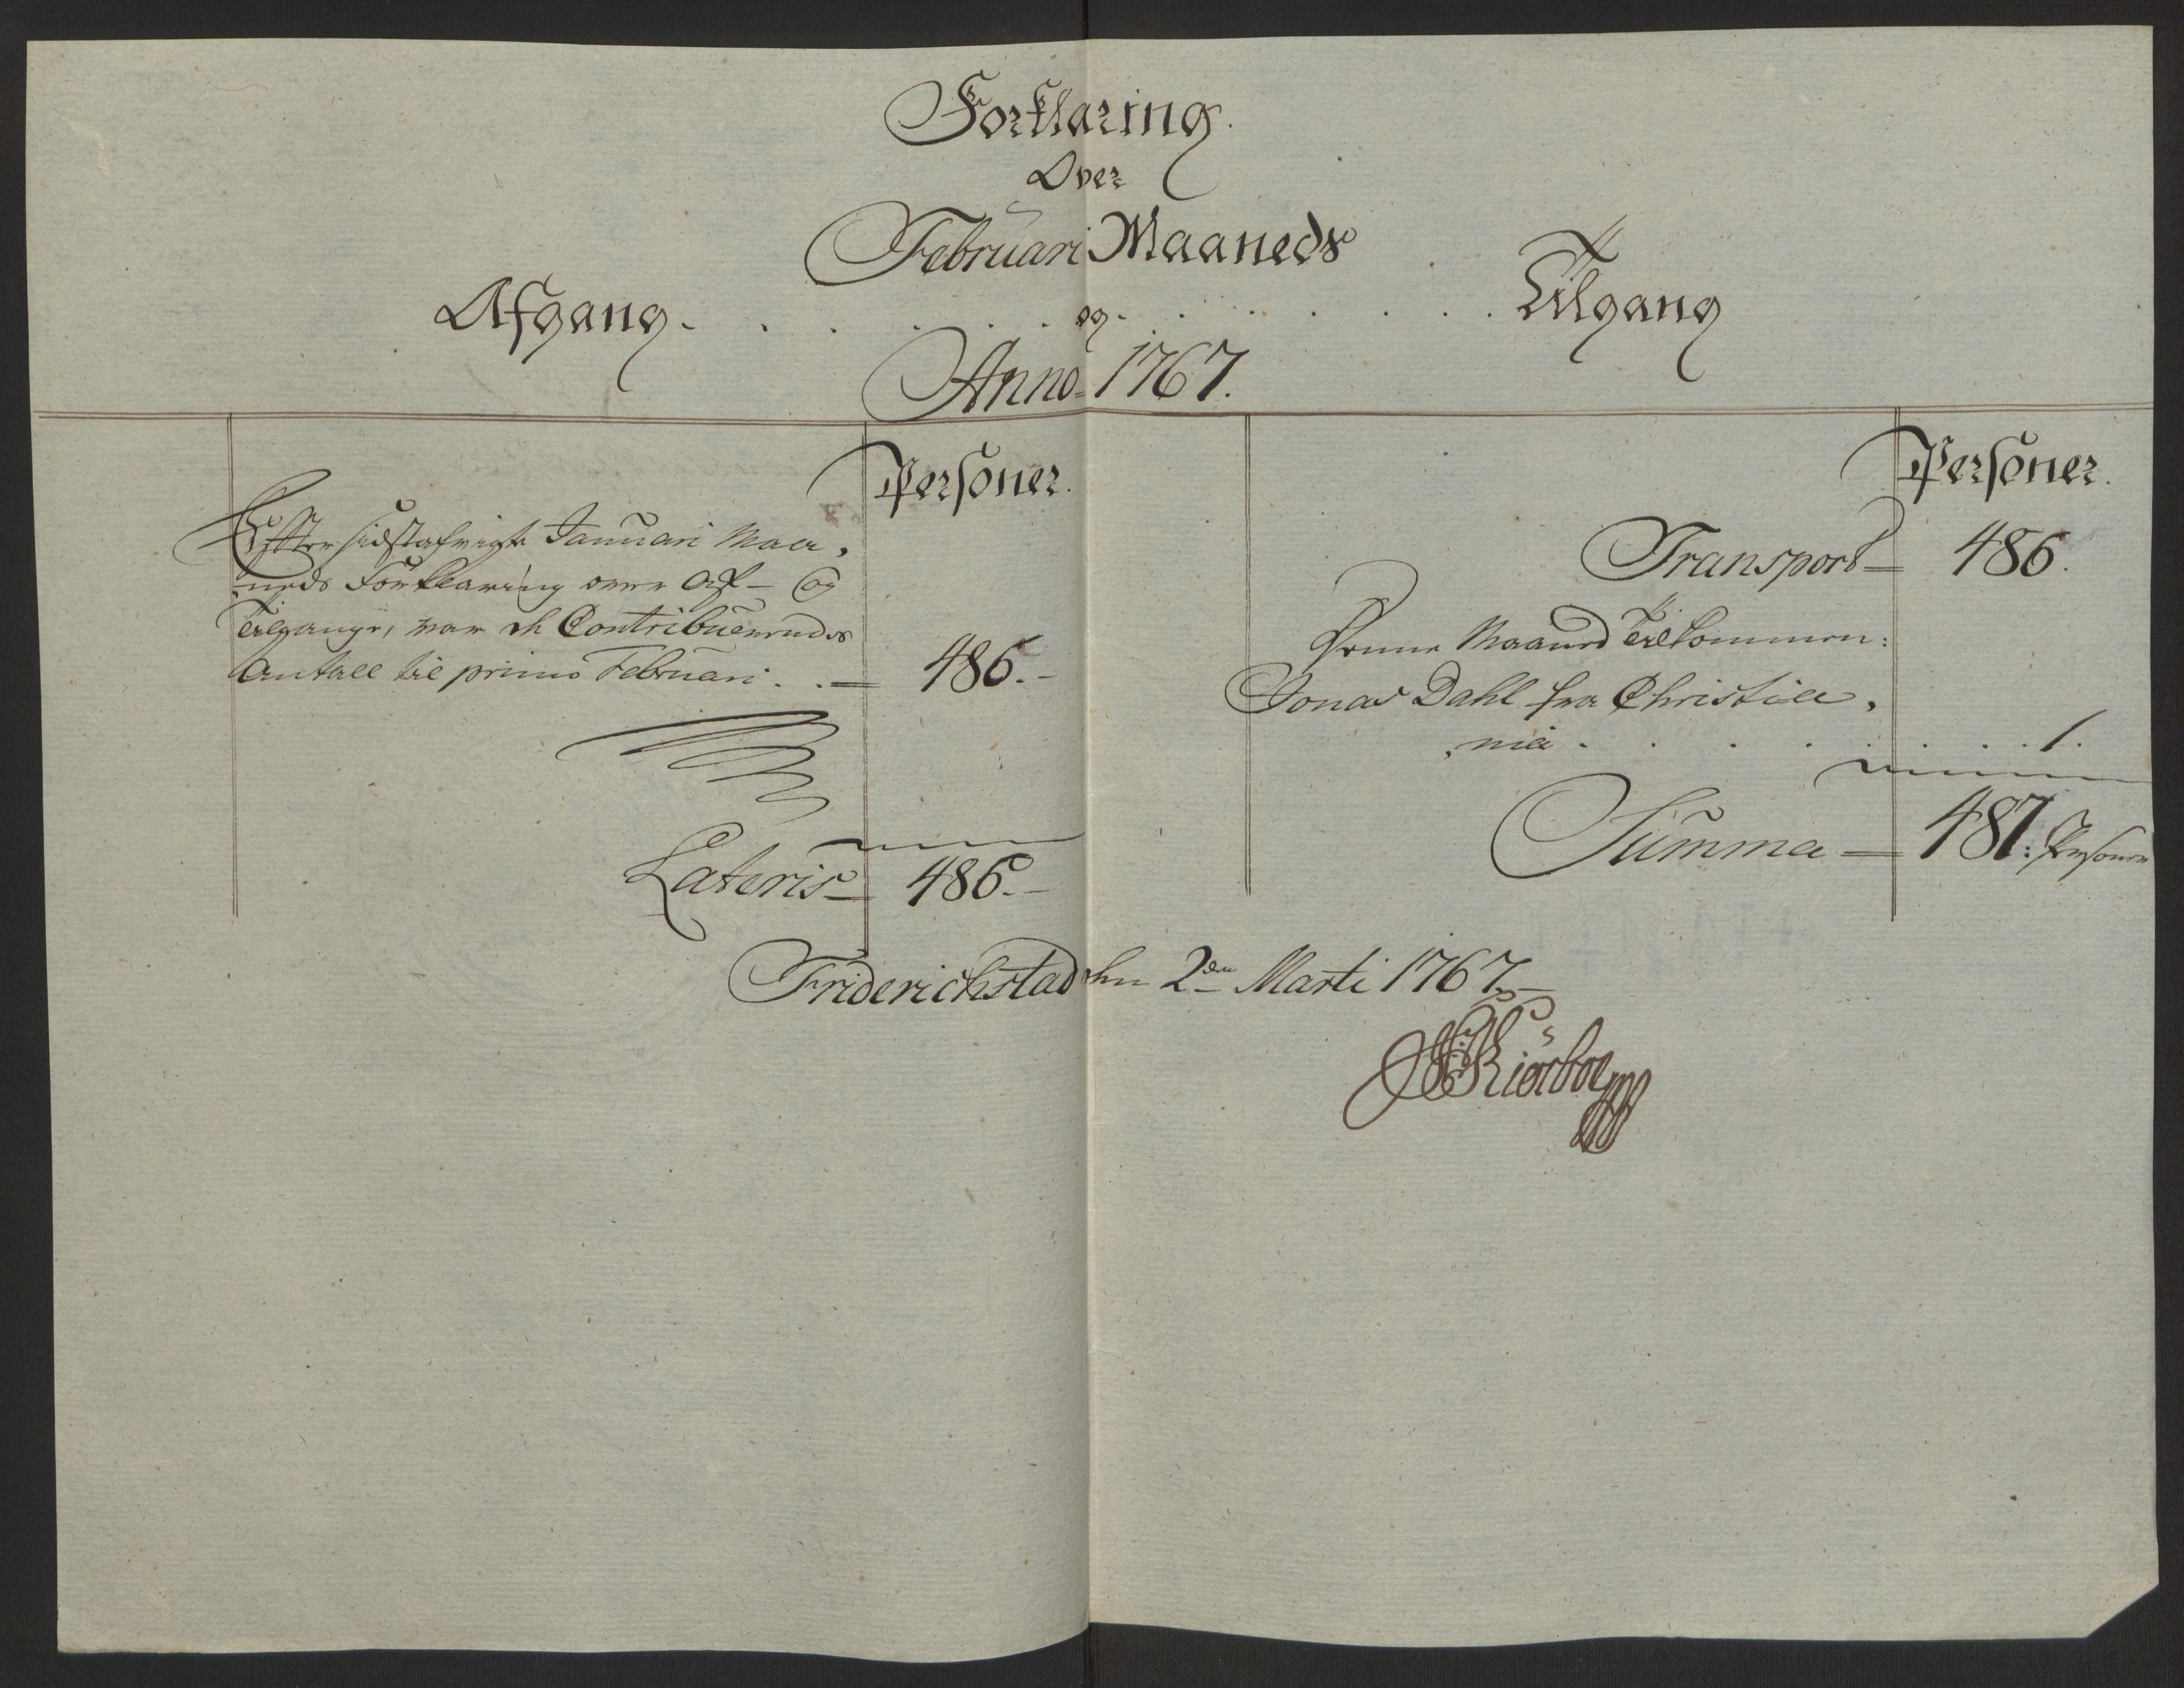 Forklaring.
Over
Februari Maaneds
Afgang. . . . . . og . . . . . . . Tilgang
Anno 1767.
Personer.
Effter sidstafvigte Januari Maa,
neds Forklaring over Af- og
Tilgange, var de Contribuerendes
Antall til primo Februari . . 486.-
Lateris 486.-
Personer.
Transport 486.
Denne Maaned Tilkommen:
Jonas Dahl fra Christia,
,nia . . . . . . . 1.
Summa 487: Personer
Friderichstad den 2den Marti 1767.
Kiörboe